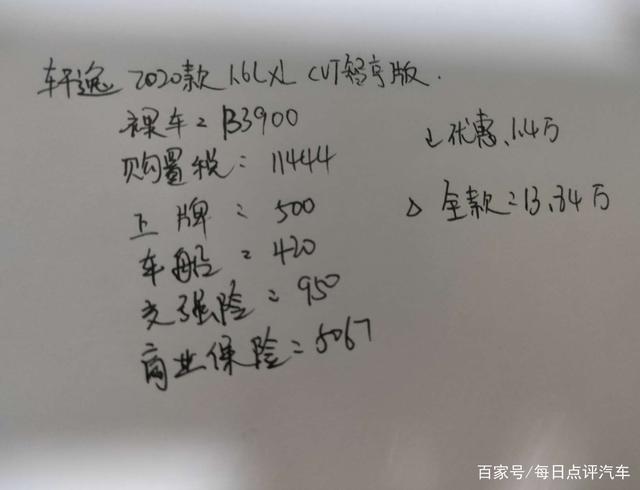 轩逸 2020款 1.6L XL CVT智享版.
裸车:133900
购置税:11444
上牌:500
车船:420
交强险:950
商业保险:5067
↓优惠1.4万
△ 全款:13.84万
百家号/每日点评汽车